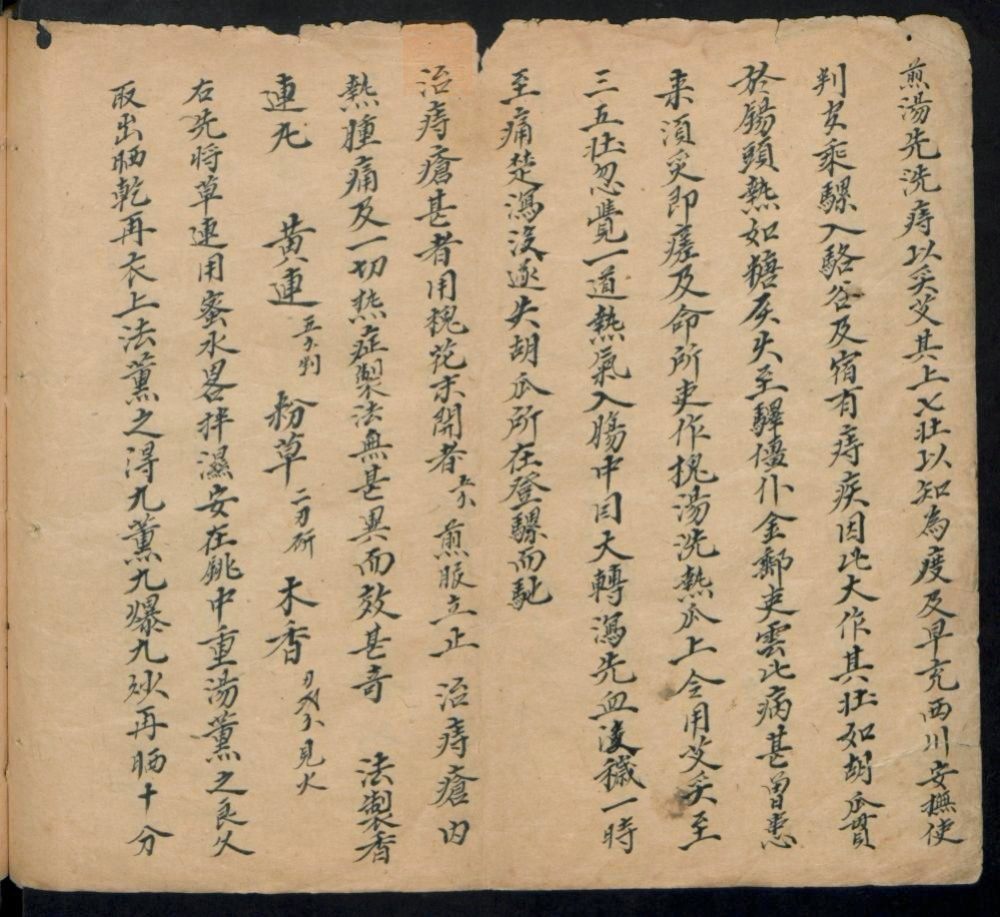 煎湯先洗痔以炙艾其上七壯以知為度及早充西川安撫使
判官乘騾入駱谷及宿有痔疾因此大作其壯如胡瓜貫
於腸頭熱如糖灰火至驛僵仆金郵吏雲此病甚曾患
来須炙即瘥及命所吏作槐湯洗熱瓜上令用艾炙至
三五壯忽覺一道熱氣入腸中因大轉瀉先血後穢一時
至痛楚瀉後逐失胡瓜所在登騾而馳
治痔瘡甚者用槐花未開者 煎服立止 治痔瘡内
熱腫痛及一切热症製法無甚異而效甚奇 法製香
連丸 黃連 粉草 木香 見火
右先将草連用蜜水畧拌濕安在銚中重湯薰之良久
取出晒乾再衣上法薰之得九薰九爆九炒再晒十分